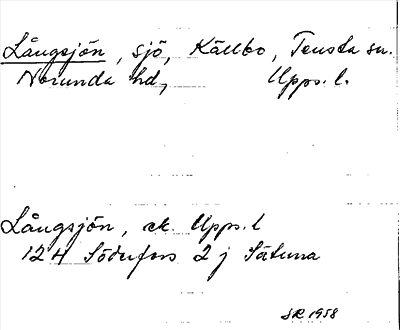 Långsjön, sjö, Källbo, Tensta sn.
Norunda hd, Upps. l.
Långsjön, ek. Upps. l
12 H Söderfors 2 j Sätuna
SR 1958